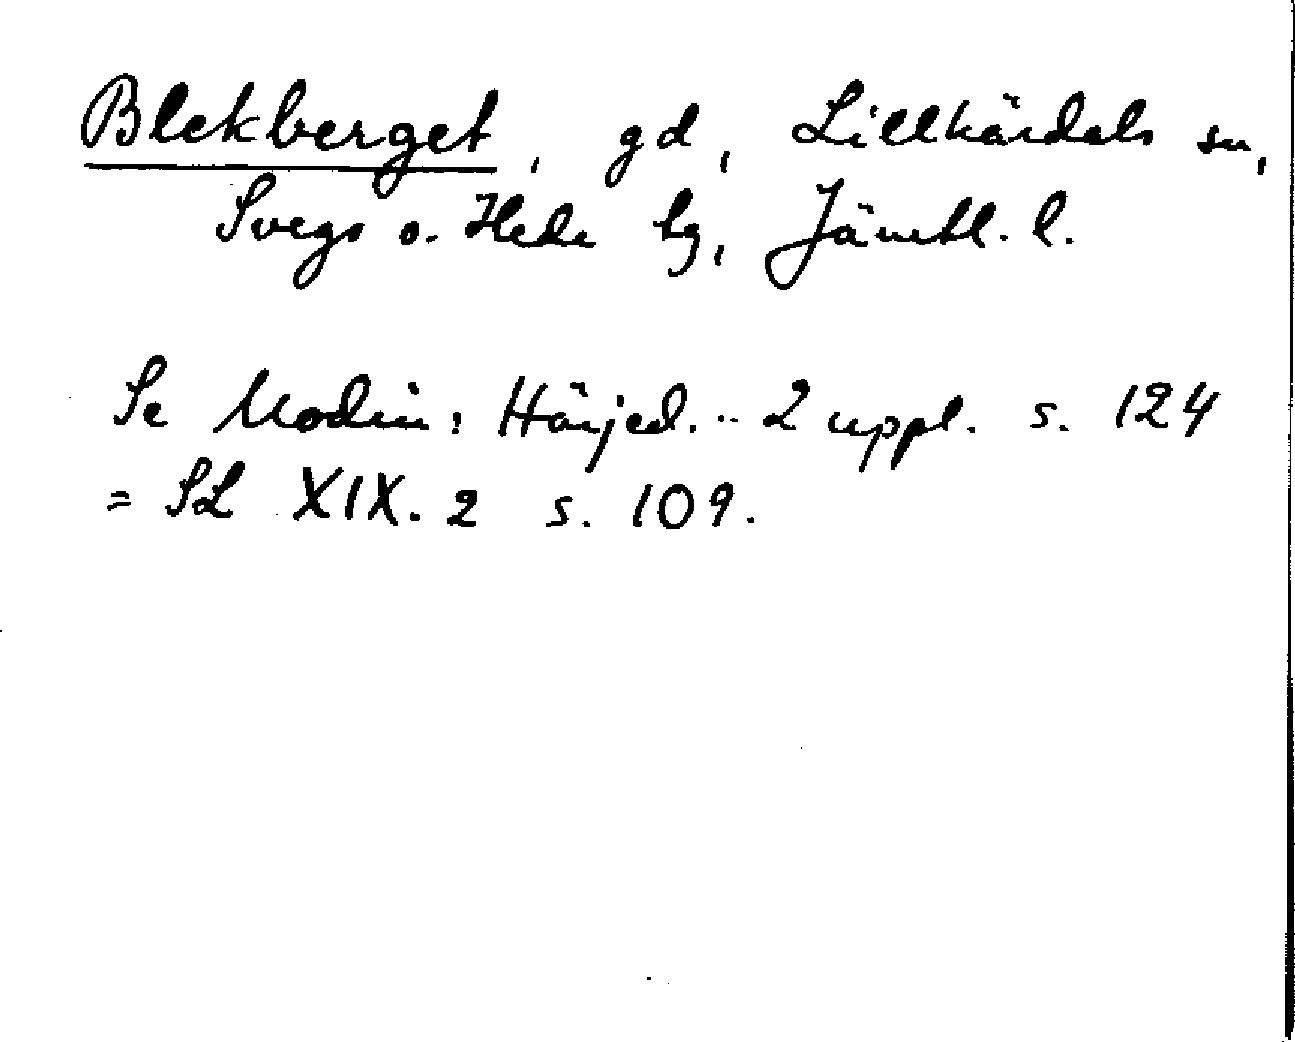 Blekberget, gd, Lillhärdals sn,
Svegs o. Hede tg, Jämtl. l.
Se Modin, Härjed... 2 uppl. s. 124
= SL XIX. 2 s. 109.